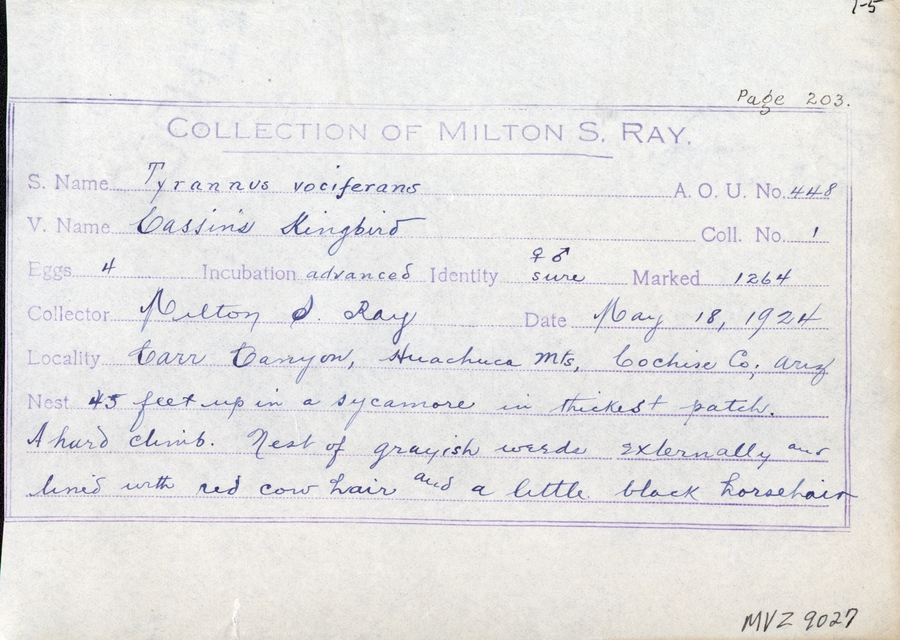 1-5
Page 203.
COLLECTION OF MILTON S. RAY.
S. Name Tyrannus vociferans A. O. U. No. 448
V. Name Cassin's Kingbird Coll. No. 1
♀ ♂
Eggs 4 Incubation advanced Identity sure Marked 1264
Collector Milton S. Ray Date May 18, 1924
Locality Carr Canyon, Huachuca Mts, Cochise Co; Ariz
Nest 45 feet up in a sycamore in thickest patch.
A hard climb. Nest of grayish weeds externally and
lined with red cow hair and a little black horsehair
MVZ 9027